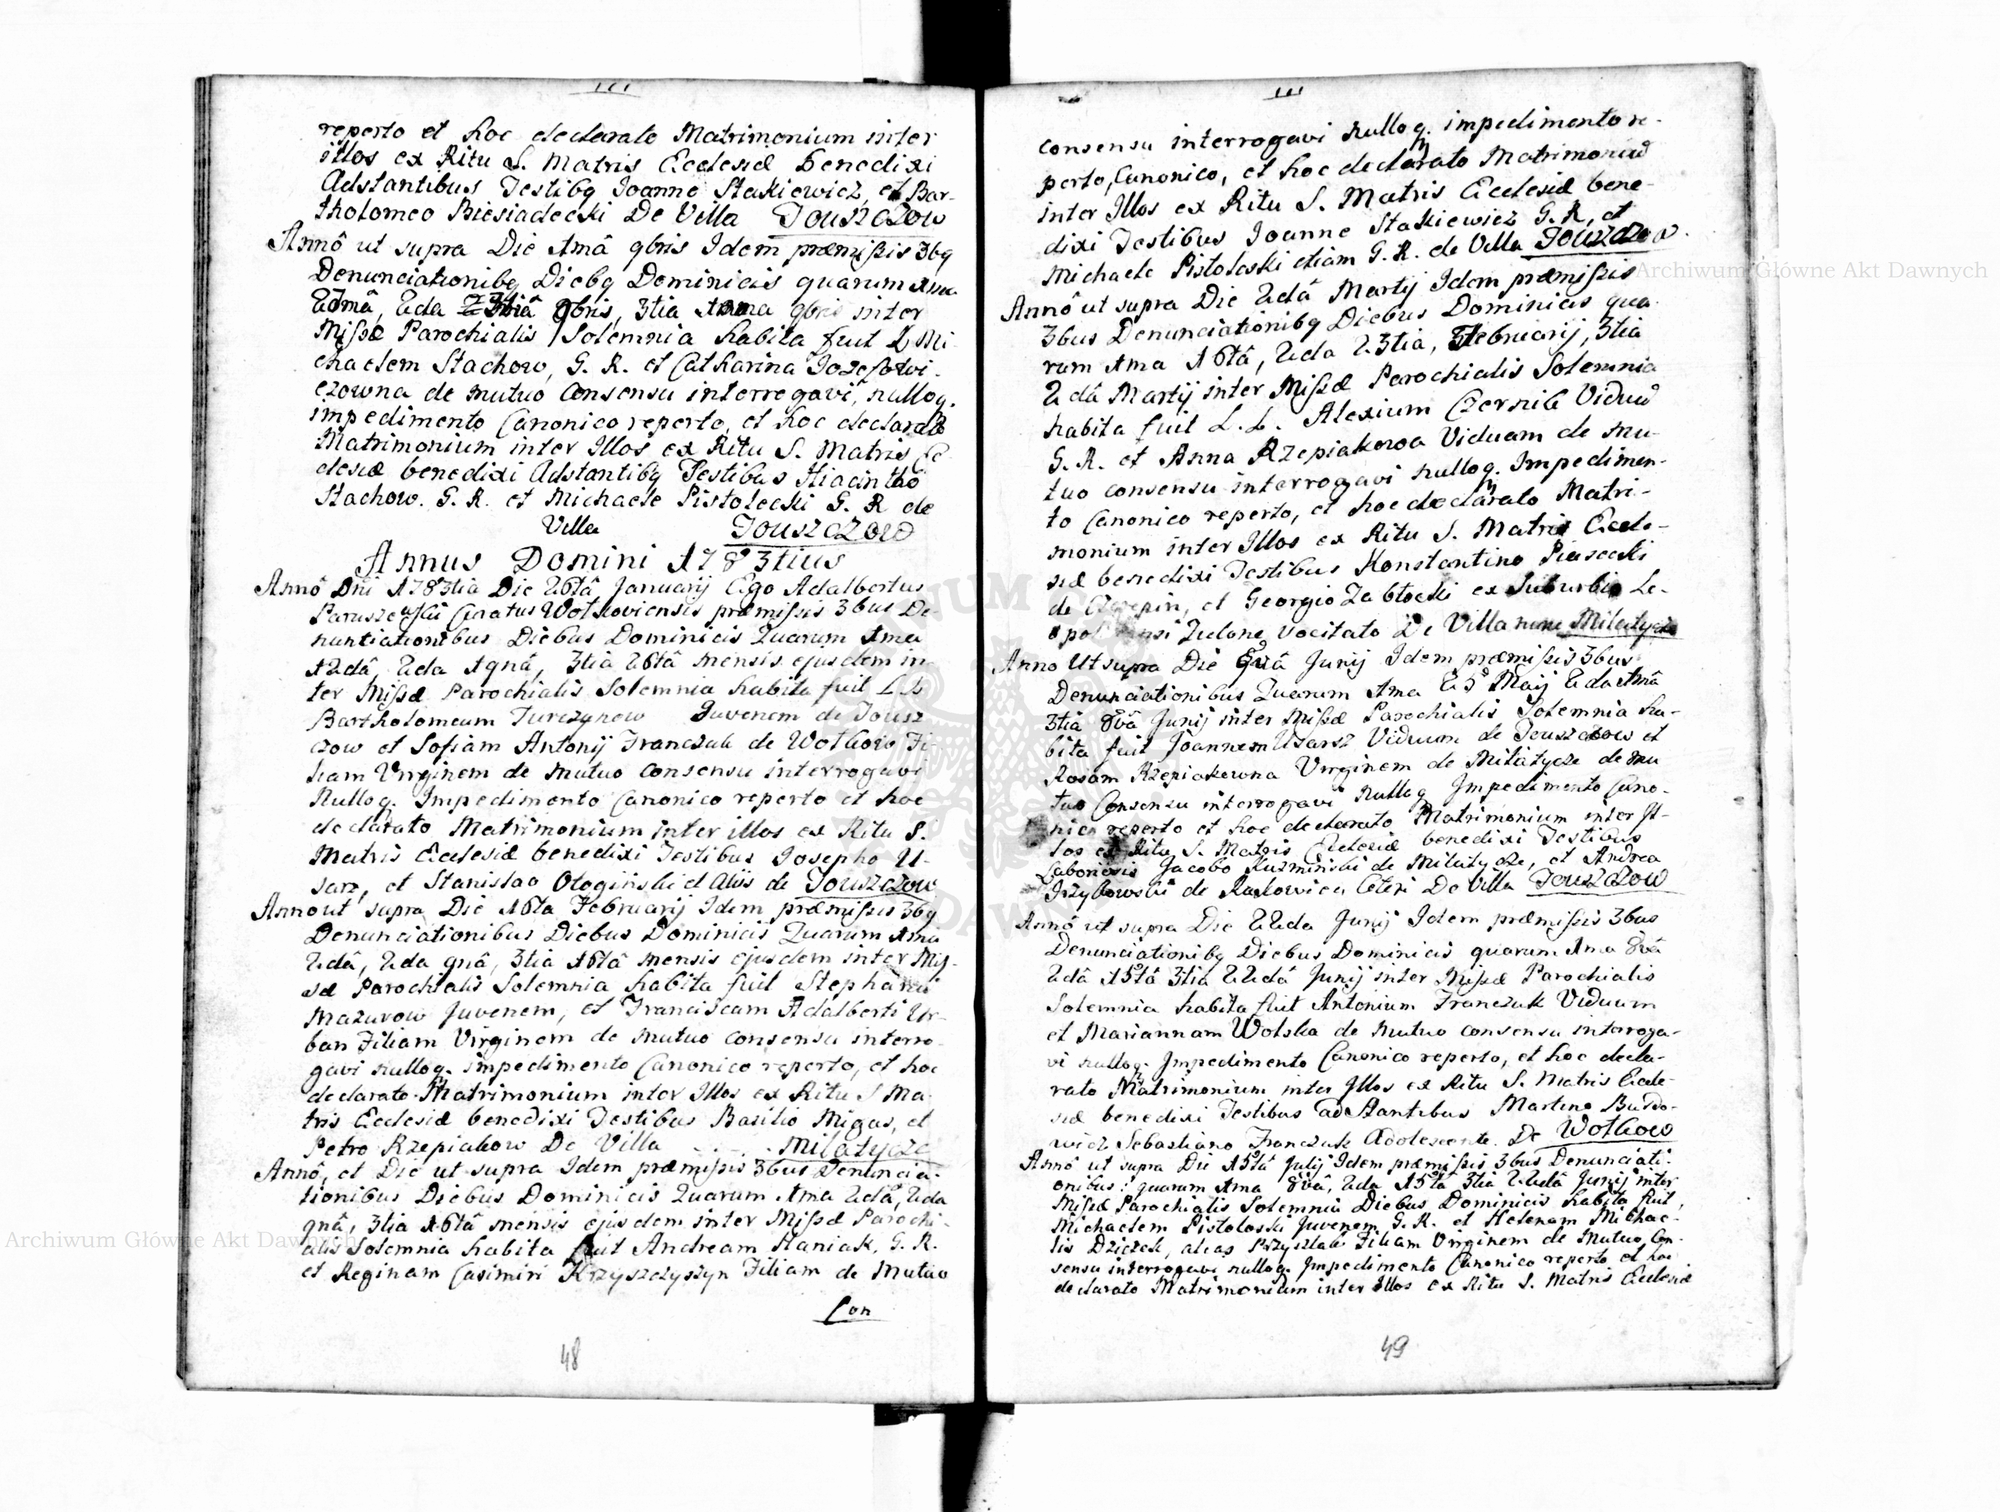 reperto et hoc declarato Matrimonium inter
illos ex Ritu S. Matris Ecclesiæ benedixi
Adstantibus Testibq Joanne Stakiewicz, et Bar-
tholomeo Biesiadecki De Villa Touszczow
Annô ut supra Die 1mâ 9bris Idem præmissis 3bq
Denunciationibq Diebq Dominicis quarum 1ma
2da 3tia 9bris inter
Missæ Parochialis Solemnia habita fuit L Mi-
chaelem Stachow, G. R. et Catharina Jozefowi-
czowna de mutuo Consensu interrogavi, nulloq.
impedimento Canonico reperto, et hoc declarato
Matrimonium inter Illos ex Ritu S. Matris Ec-
clesiæ benedixi Adstantibq Testibus Hiacintho
Stachow. G. R. et Michaele Pistolecki G. R de
Villa Touszczow
Annus Domini 1783tius
Annô Dni 1783tia Die 26tâ Januarij Ego Adalbertus
Paruszewski Curatus Wolkoviensis præmissis 3bus De-
nuntiationibus Diebus Dominicis Quarum 1ma
12dâ, 2da 19nâ, 3tia 26tâ mensis ejusdem in-
ter Missæ Parochialis Solemnia habita fuit L L
Bartholomeum Turczynow Juvenem de Tousz
czow et Sofiam Antonij Franczuk de Wolkow Fi-
liam Virginem de mutuo Consensu interrogavi
Nulloq. Impedimento Canonico reperto et hoc
declarato Matrimonium inter illos ex Ritu S.
Matris Ecclesiæ benedixi Testibus Josepho U-
sarz, et Stanislao Ologiński et Aliis de Touszczow
Anno ut supra Die 16ta Februarij Idem præmissis 3bq
Denunciationibus Diebus Dominicis Quarum 1ma
2dâ, 2da 9nâ, 3tia 16tâ mensis ejusdem inter Mis-
sæ Parochialis Solemnia habita fuit Stephanum
Mazurow Juvenem, et Franciscam Adalberti Ur-
ban Filiam Virginem de mutuo consensu interro-
gavi nulloq. impedimento Canonico reperto, et hoc
declarato Matrimonium inter Illos ex Ritu S Ma-
tris Ecclesiæ benedixi Testibus Basilio Migas, et
Petro Rzepiakow De Villa Milatycze
Annô, et Die ut supra Idem præmissis 3bus Denuncia-
tionibus Diebus Dominicis Quarum 1ma 2dâ, 2da
9nâ, 3tia 16tâ mensis ejusdem inter Missæ Parochi-
alis Solemnia habita fuit Andream Haniak, G. R.
et Reginam Casimiri Krzyszczyszyn Filiam de Mutuo
Con
48
consensu interrogavi nulloq. impedimento re-
perto, Canonico, et hoc declarato Matrimoniũ
inter Illos ex Ritu S. Matris Ecclesiæ bene-
dixi Testibus Joanne Stakiewicz G. R, et
Michaele Pistoleski etiam G. R. de Villa Touszczow.
Annô ut supra Die 2dâ Martij Idem præmissis
3bus Denunciationibq Diebus Dominicis qua-
rum 1ma 16tâ, 2da 23tia, Februarij, 3tia
2dâ Martij inter Missæ Parochialis Solemnia
habita fuit L. L. Alexium Czernik Viduũ
G. R. et Anna Rzepiakowa Viduam de mu-
tuo consensu interrogavi nulloq. Impedimen-
to Canonico reperto, et hoc declarato Matri-
monium inter Illos ex Ritu S. Matris Eccle-
siæ benedixi Testibus Konstantino Piasecki
de Czerepin, et Georgio Zabłocki ex Suburbio Le-
opol ensi Zielone vocitato De Villa Milatycze
Anno Ut supra Die 8vâ Junij Idem præmissis 3bus
Denunciationibus Quarum 1ma 25ta Maij 2da 1mâ
3tiâ 8vâ Junij inter Missæ Parochialis Solemnia ha-
bita fuit Joannem Usarsz Viduum de Touszczow et
Rosam Rzepiakowna Virginem de Milatycze de mu
tuo Consensu interrogavi Nulloq Impedimento Cano-
nico reperto et hoc declarato Matrimonium inter Il-
los ex Ritu S. Matris Ecclesiæ benedixi Testibus
Laboriosis Jacobo Kuzminski de Milatycze, et Andrea
Trzybowski de Raclowica Ceteri De Villa Touszczow
Annô ut supra Die 22da Junij Idem præmissis 3bus
Denunciationibq Diebus Dominicis quarum 1ma 8vâ
2dâ 15tâ 3tia 22dâ Junij inter Missæ Parochialis
Solemnia habita fuit Antonium Franczuk Viduum
et Mariannam Wolska de Mutuo consensu interroga-
vi nulloq. Impedimento Canonico reperto, et hoc decla-
rato Matrimonium inter Illos ex Ritu S. Matris Eccle-
siæ benedixi Testibus adstantibus Martino Budzo-
wicz Sebastiano Franczuk Adolescente. De Wolkow
Annô ut supra Die 15tâ Julij Idem præmissis 3bus Denunciati-
onibus: quarum 1ma 8vâ, 2da 15tâ 3tia 22dâ Junij inter
Missæ Parochialis Solemnia Diebus Dominicis habita fuit,
Michaelem Pistoloski Juvenem G. R. et Helenam Michae-
lis Dziczek, alias Przyszlak Filiam Virginem de Mutuo Con-
sensu interrogavi nulloq. Impedimento Canonico reperto, et hoc
declarato Matrimonium inter Illos ex Ritu S. Matris Ecclesiæ
49
Archiwum Główne Akt Dawnych
Archiwum Główne Akt Dawnych